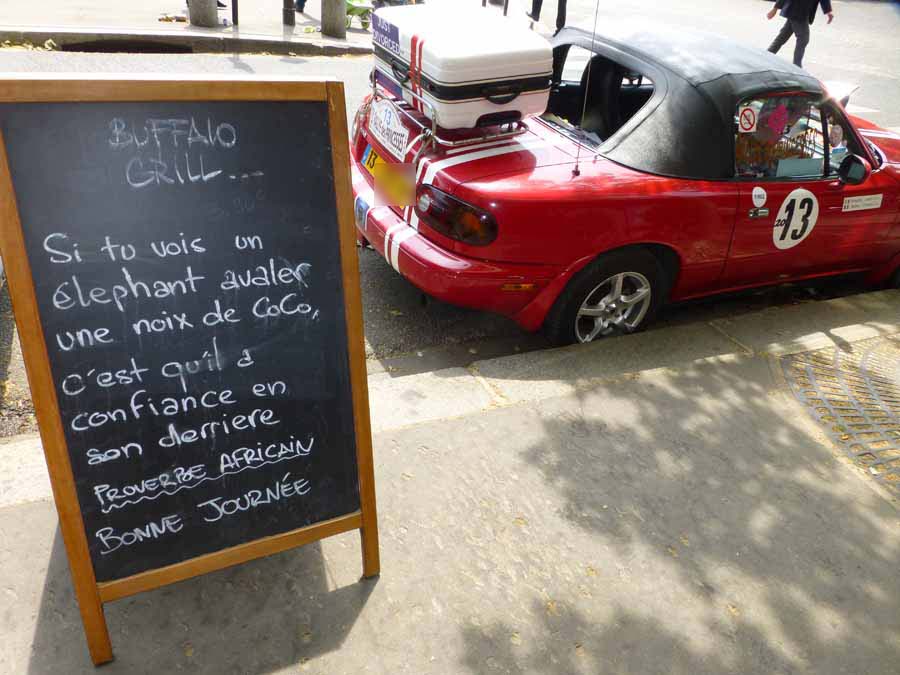 BUFFALO
GRILL...
Si tu vois un
élephant avaler
une noix de CoCo,
c'est qu'il a
confiance en
son derriere
PROVERBE AFRICAIN
BONNE JOURNÉE
JUST
DIVORCED
13
13
2013